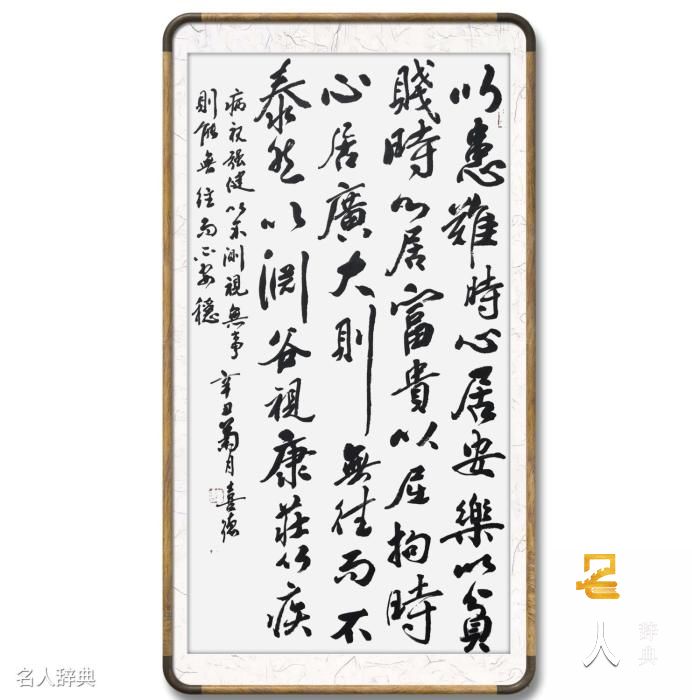 以患難時心居安樂以貧
賤時心居富貴以屈拘時
心居廣大則無往而不
泰然以淵谷視康莊以疾
病視强健以不測視無事
則能無往而不安穩
辛丑菊月喜德
名人辞典
名人
辞典